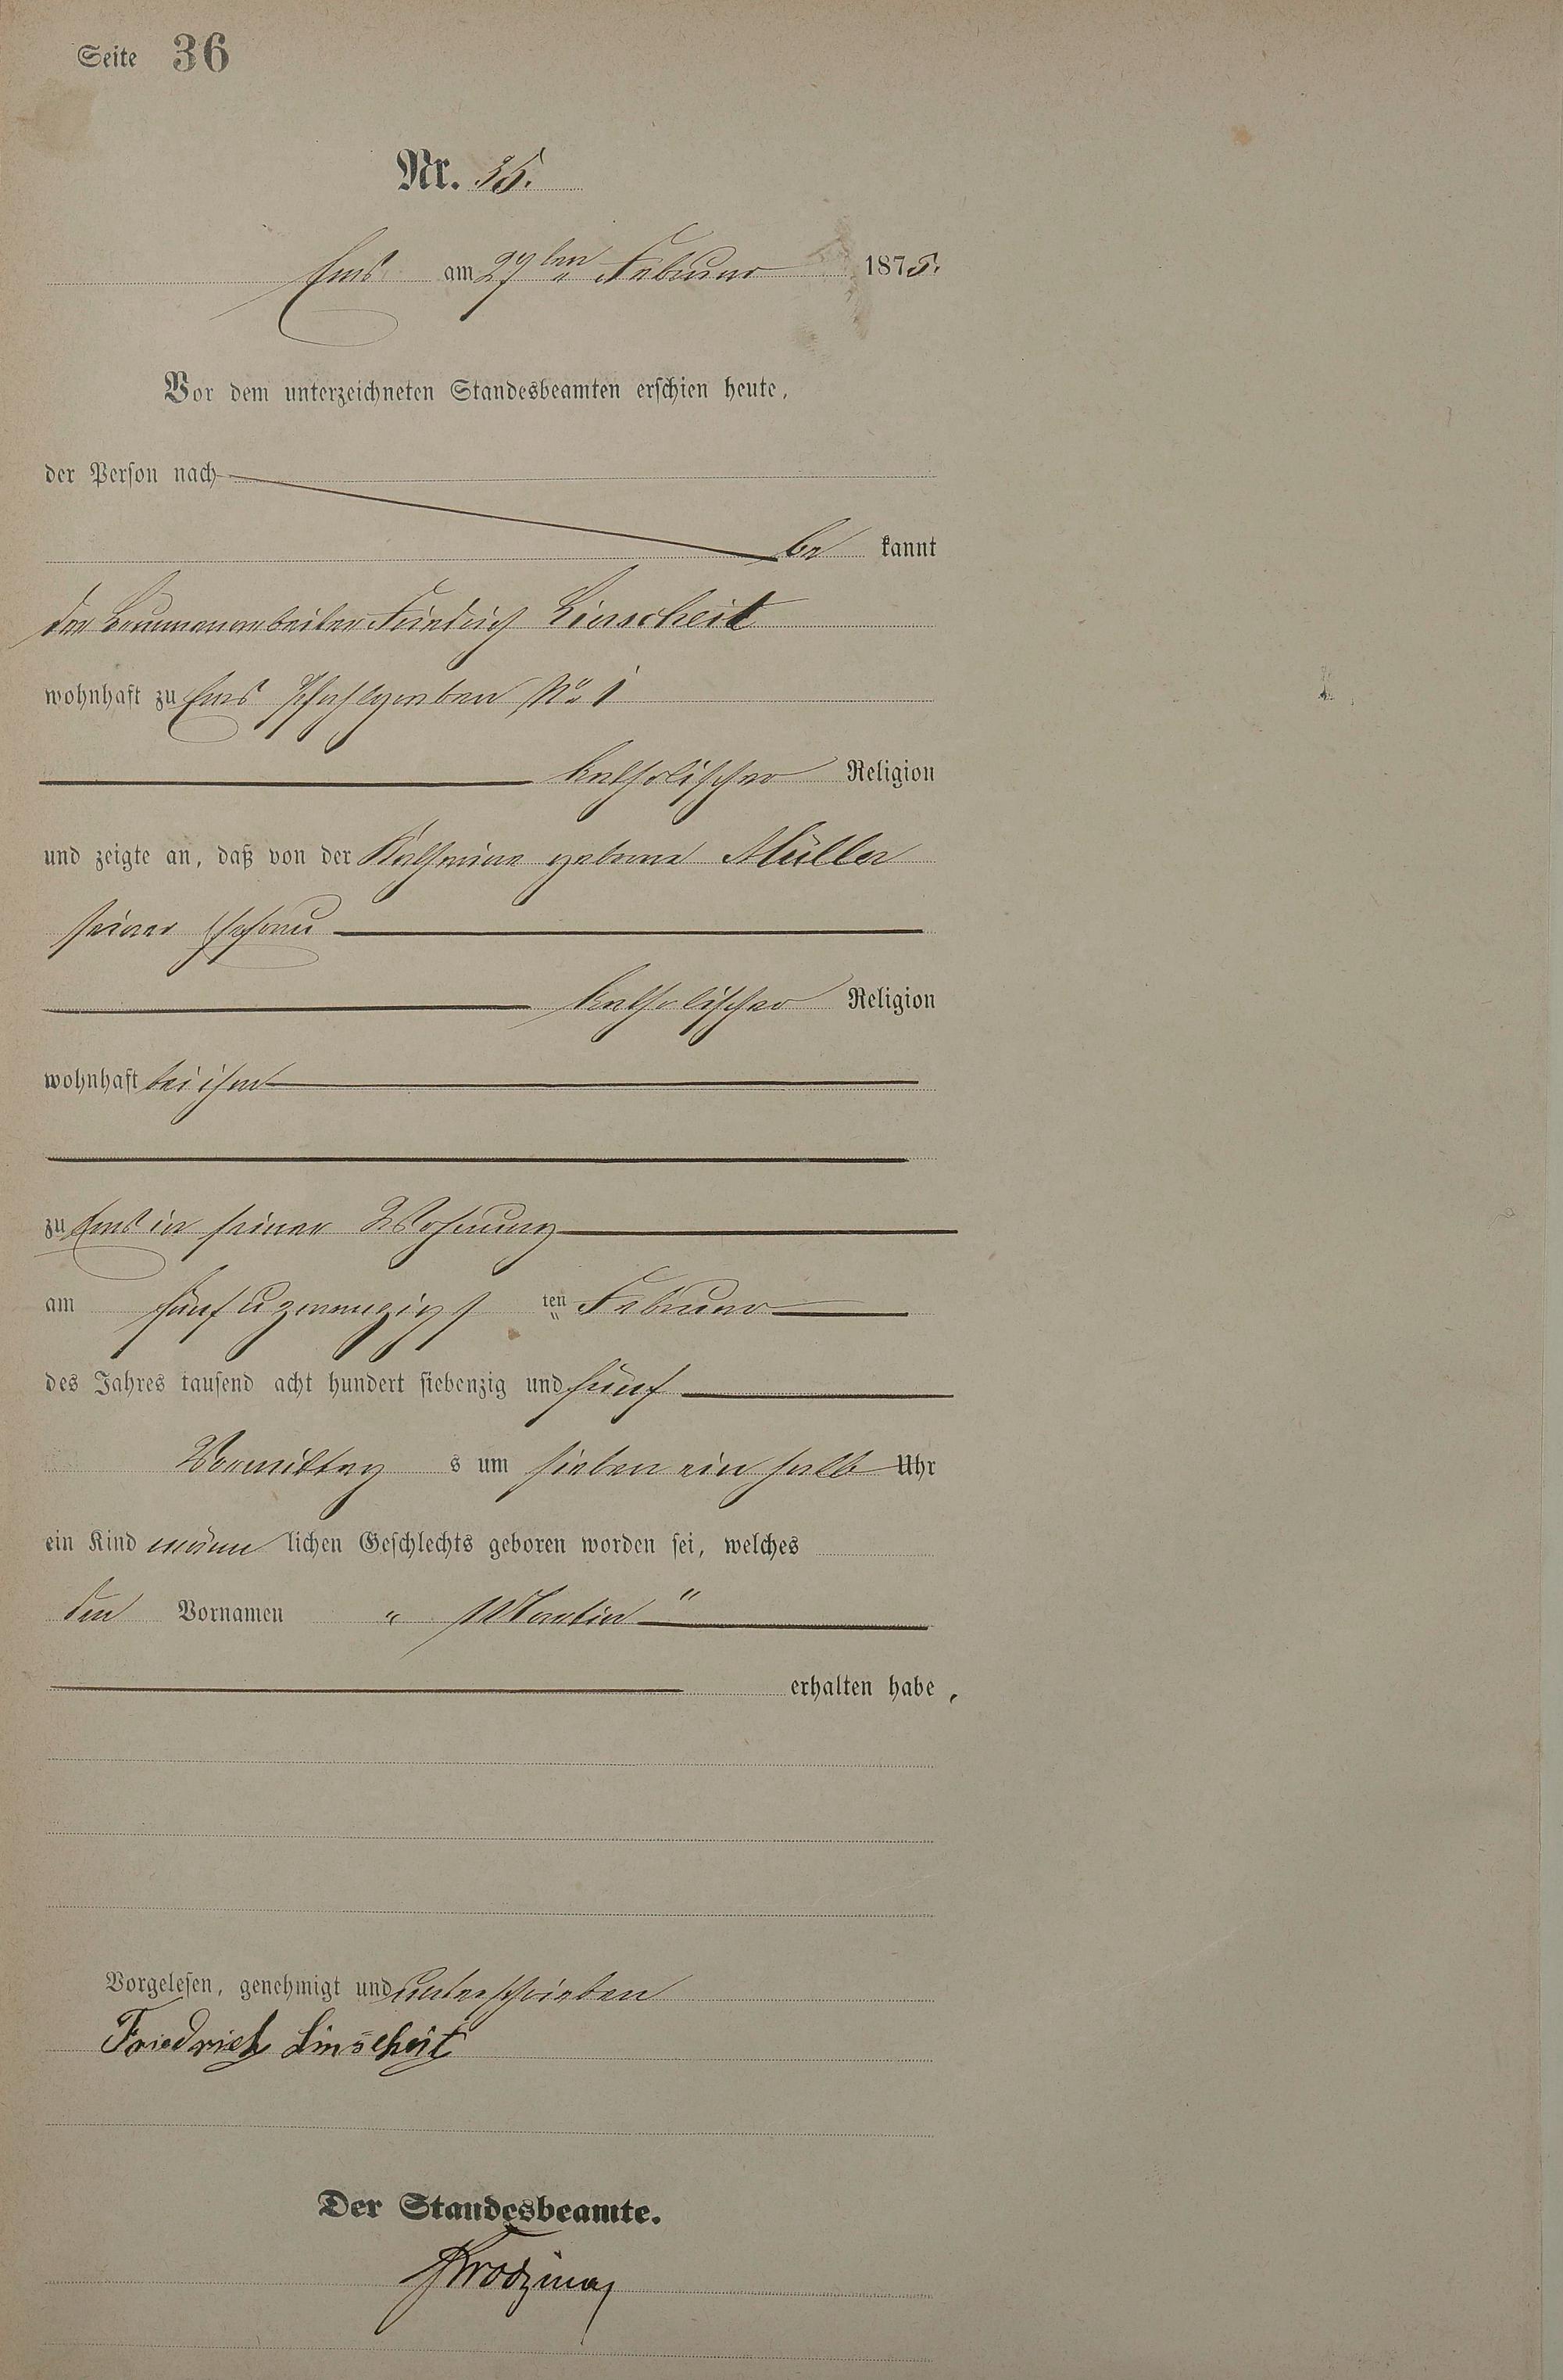 Seite 36
Nr. 35.
Ems am 27ten Februar 1875.
Vor dem unterzeichneten Standesbeamten erschien heute,
der Person nach
be kannt
der Brunnenarbeiter Friedrich Linscheit
wohnhaft zu Ems Pfahlgraben No 1
katholischer Religion
und zeigte an, daß von der Katharina geborene Müller
seiner Ehefrau
katholischer Religion
wohnhaft bei ihm
zu Ems in seiner Wohnung
am fünf u zwanzigs ten Februar
des Jahres tausend acht hundert siebenzig und fünf
Vormittag s um sieben ein halb Uhr
ein Kind männ lichen Geschlechts geboren worden sei, welches
den Vornamen " Martin "
erhalten habe,
Vorgelesen, genehmigt und unterschrieben
Friedrich Linscheit
Der Standesbeamte.